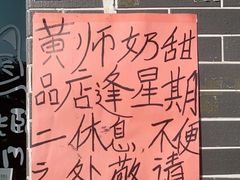 黄师奶甜
品店逢星期
二休息,不便
之处敬请